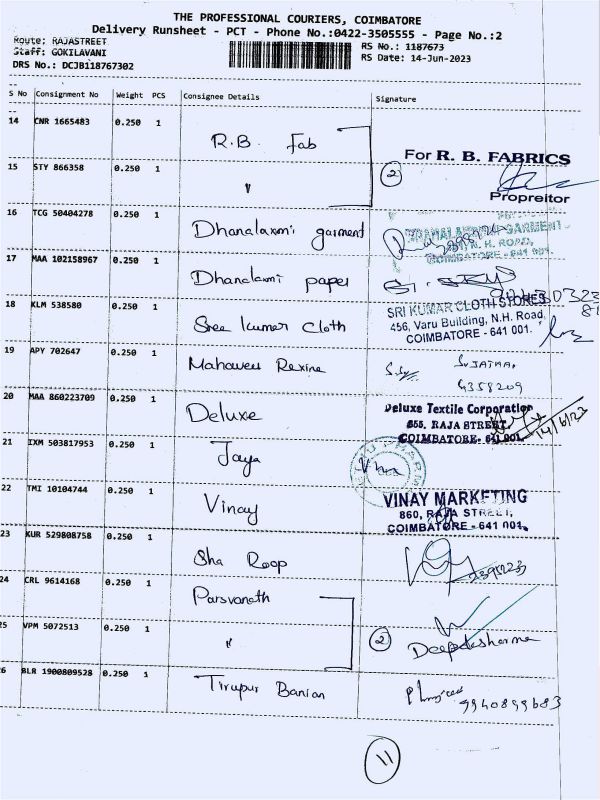 THE PROFESSIONAL COURIERS, COIMBATORE
Delivery Runsheet - PCT - Phone No.:0422-3505555 - Page No.:2
Route: RAJASTREET
RS No.: 1187673
Staff: GOKILAVANI
RS Date: 14-Jun-2023
DRS No.: DCJB118767302
S No Consignment No Weight PCS Consignee Details Signature
14 CNR 1665483 0.250 1 R.B. Fab
For R. B. FABRICS
15 STY 866358 0.250 1 " 2
Propreitor
16 TCG 50404278 0.250 1 Dhanalaxmi garment
N. H. ROAD,
COIMBATORE - 641 001.
17 MAA 102158967 0.250 1 Dhanalaxmi paper
18 KLM 538580 0.250 1 Sree Kumar Cloth
SRI KUMAR CLOTH STORES
456, Varu Building, N.H. Road,
COIMBATORE - 641 001.
19 APY 702647 0.250 1 Mahaveer Rexine
9358209
20 MAA 860223709 0.250 1 Deluxe
Deluxe Textile Corporation
855, RAJA STREET,
COIMBATORE- 641 001.
14/6/23
21 IXM 503817953 0.250 1 Jaya
22 TMI 10104744 0.250 1 Vinay
VINAY MARKETING
860, RAJA STREET,
COIMBATORE - 641 001.
23 KUR 529808758 0.250 1 Sha Roop
24 CRL 9614168 0.250 1 Parsvanath
25 VPM 5072513 0.250 1 " 2
Deepdesharma
26 BLR 1900809528 0.250 1 Tirupur Banian
9940899683
11